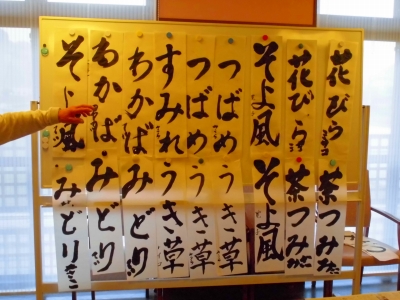 花びら
花びら
そよ風
つばめ
つばめ
すみれ
わかば
わかば
そよ風
茶つみ
茶つみ
そよ風
うき草
うき草
うき草
みどり
みどり
みどり